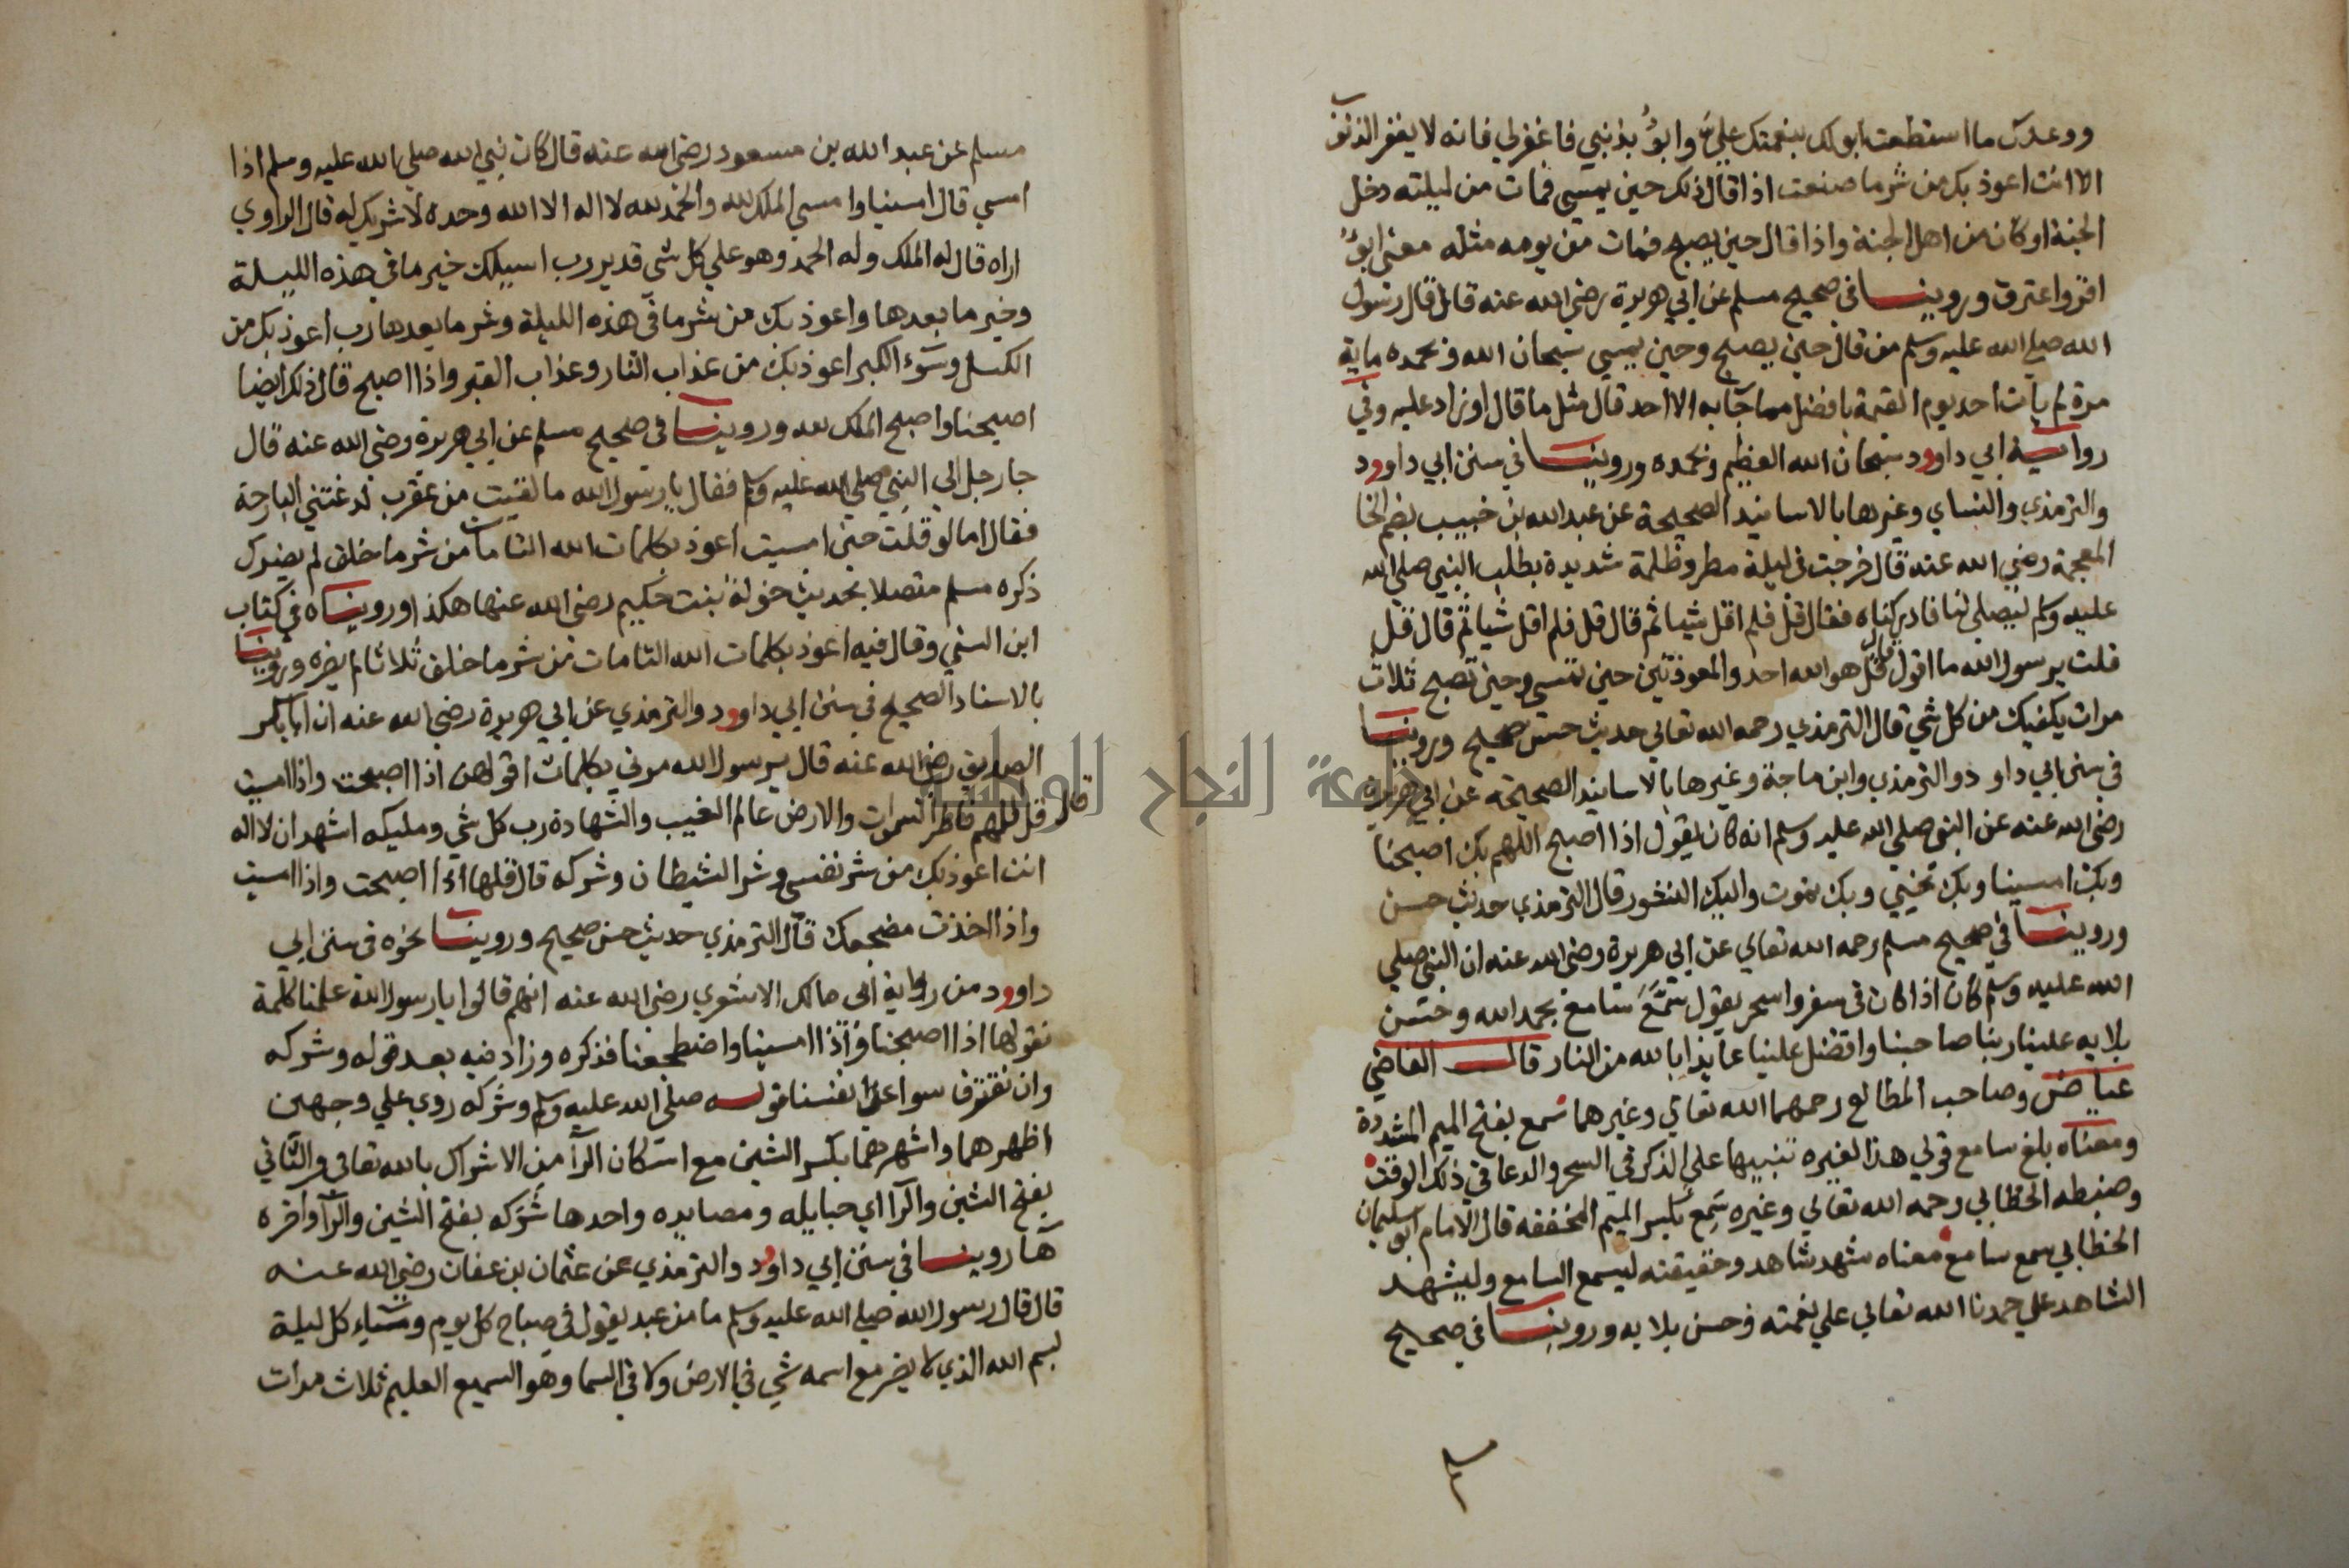 ووعدك ما استطعت ابو لك بنعمتك علي وابوُ بذنبي فاغفرلي فانه لا يغفر الذنوب
الا انت اعوذ بك من شر ما صنعت اذا قال ذلك حين يمسي فمات من ليلته دخل
الجنة او كان من اهل الجنة واذا قال حين يصبح فمات من يومه مثله معنى ابوُ
اقر واعترف وروينا في صحيح مسلم عن ابي هريرة رضي الله عنه قال قال رسول
الله صلى الله عليه وسلم من قال حين يصبح وحين يمسي سبحان الله وبحمده ماية
مرة لم يأت احد يوم القيمة بافضل مما جآ به الا احد قال مثل ما قال او زاد عليه وفي
رواية ابي داوود سبحان الله العظيم وبحمده وروينا في سنن ابي داوود
والترمذي والنساي وغيرها بالاسانيد الصحيحة عن عبد الله بن خبيب بضم الخا
المعجمة رضي الله عنه قال خرجت في ليلة مطر وظلمة شديدة بطلب النبي صلى الله
عليه وسلم ليصلى لنا فادركناه فقال قل فلم اقل شيا ثم قال قل فلم اقل شيا ثم قال قل
قلت يرسول الله ما اقول قال قل هو الله احد والمعوذتين حين تمسى وحين تصبح ثلاث
مرات يكفيك من كل شي قال الترمذي رحمه الله تعالى حديث حسن صحيح وروينا
في سنن ابي داود والترمذي وابن ماجة وغيرها بالاسانيد الصحيحة عن ابي هريرة
رضي الله عنه عن النبي صلى الله عليه وسلم انه كان يقول اذا اصبح اللهم بك اصبحنا
وبك امسينا وبك نحيي وبك نموت واليك النشور قال الترمذي حديث حسن
وروينا في صحيح مسلم رحمه الله تعالى عن ابي هريرة رضي الله عنه ان النبي صلى
الله عليه وسلم كان اذا كان في سفر واسحر يقول سَمَّعَ سامع بحمد الله وحسن
بلايه علينا ربنا صاحبنا وافضل علينا عايذا بالله من النار قال القاضي
عياض وصاحب المطالع رحمهما الله تعالى وغيرهما سمع بفتح الميم المشددة
ومعناه بلغ سامع قولي هذا لغيره تنبيها على الذكر في السحر والدعا في ذلك الوقت
وضبطه الخطابي رحمه الله تعالى وغيره سَمِع بكسر الميم المخففه قال الامام ابو سليمان
الخطابي سمع سامع معناه شهد شاهد وحقيقته ليسمع السامع وليشهد
الشاهد على حمدنا الله تعالى على نعمته وحسن بلايه وروينا في صحيح
مسلم
مسلم عن عبد الله بن مسعود رضي الله عنه قال كان نبي الله صلى الله عليه وسلم اذا
امسى قال امسينا وامسى الملك لله والحمد لله لا اله الا الله وحده لا شريك له قال الراوي
اراه قال له الملك وله الحمد وهو على كل شي قدير رب اسيلك خير ما في هذه الليلة
وخير ما بعدها واعوذ بك من شر ما في هذه الليلة وشر ما بعدها رب اعوذ بك من
الكسل وسوء الكبر اعوذ بك من عذاب النار وعذاب القبر واذا اصبح قال ذلك ايضا
اصبحنا واصبح الملك لله وروينا في صحيح مسلم عن ابي هريرة رضي الله عنه قال
جا رجل الى النبي صلى الله عليه وسلم فقال يا رسول الله ما لقيت من عقرب لدغتني البارحة
فقال اما لو قلت حين امسيت اعوذ بكلمات الله التامات من شر ما خلق لم يضرك
ذكره مسلم متصلا بحديث خولة بنت حكيم رضي الله عنها هكذا ورويناه في كتاب
ابن السني وقال فيه اعوذ بكلمات الله التامات من شر ما خلق ثلاثا لم يضره وروينا
بالاسناد الصحيح في سنن ابي داوود والترمذي عن ابي هريرة رضي الله عنه ان ابا بكر
الصديق رضي الله عنه قال يرسول الله مرني بكلمات اقولهن اذا اصبحت واذا امسيت
قال قل اللهم فاطر السموات والارض عالم الغيب والشهادة رب كل شي ومليكه اشهد ان لا اله
انت اعوذ بك من شر نفسى وشر الشيطان وشركه قال قلها اذا اصبحت واذا امسيت
واذا اخذت مضجعك قال الترمذي حديث حسن صحيح وروينا نحوه في سنن ابي
داوود من رواية ابي مالك الاشعري رضي الله عنه انهم قالوا يا رسول الله علمنا كلمة
نقولها اذا اصبحنا واذا امسينا واضطجعنا فذكره وزاد فيه بعد قوله وشركه
وان نقترف سوا على انفسنا قوله صلى الله عليه وسلم وشركه روي على وجهين
اظهرهما واشهرهما بكسر الشين مع اسكان الرآ من الاشراك بالله تعالى والثاني
بفتح الشين والرا اي حبايله ومصايده واحدها شركه بفتح الشين والرآ واخره
هآ روينا في سنن ابي داوود والترمذي عن عثمان بن عفان رضي الله عنه
قال قال رسول الله صلى الله عليه وسلم ما من عبد يقول في صباح كل يوم ومساء كل ليلة
بسم الله الذي لا يضر مع اسمه شي في الارض ولا في السما وهو السميع العليم ثلاث مرات
جامعة النجاح الوطنية